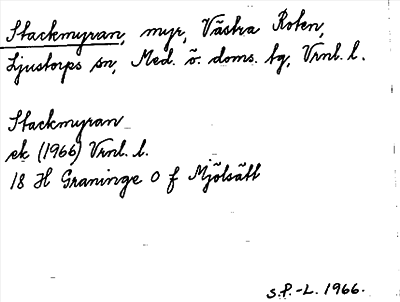 Stackmyran, myr, Västra Roten,
Ljustorps sn, Med. ö. doms. tg, Vrnl. l.
Stackmyran
ek (1966) Vrnl. l.
18 H Graninge O f Mjölsätt
S.P.-L. 1966.